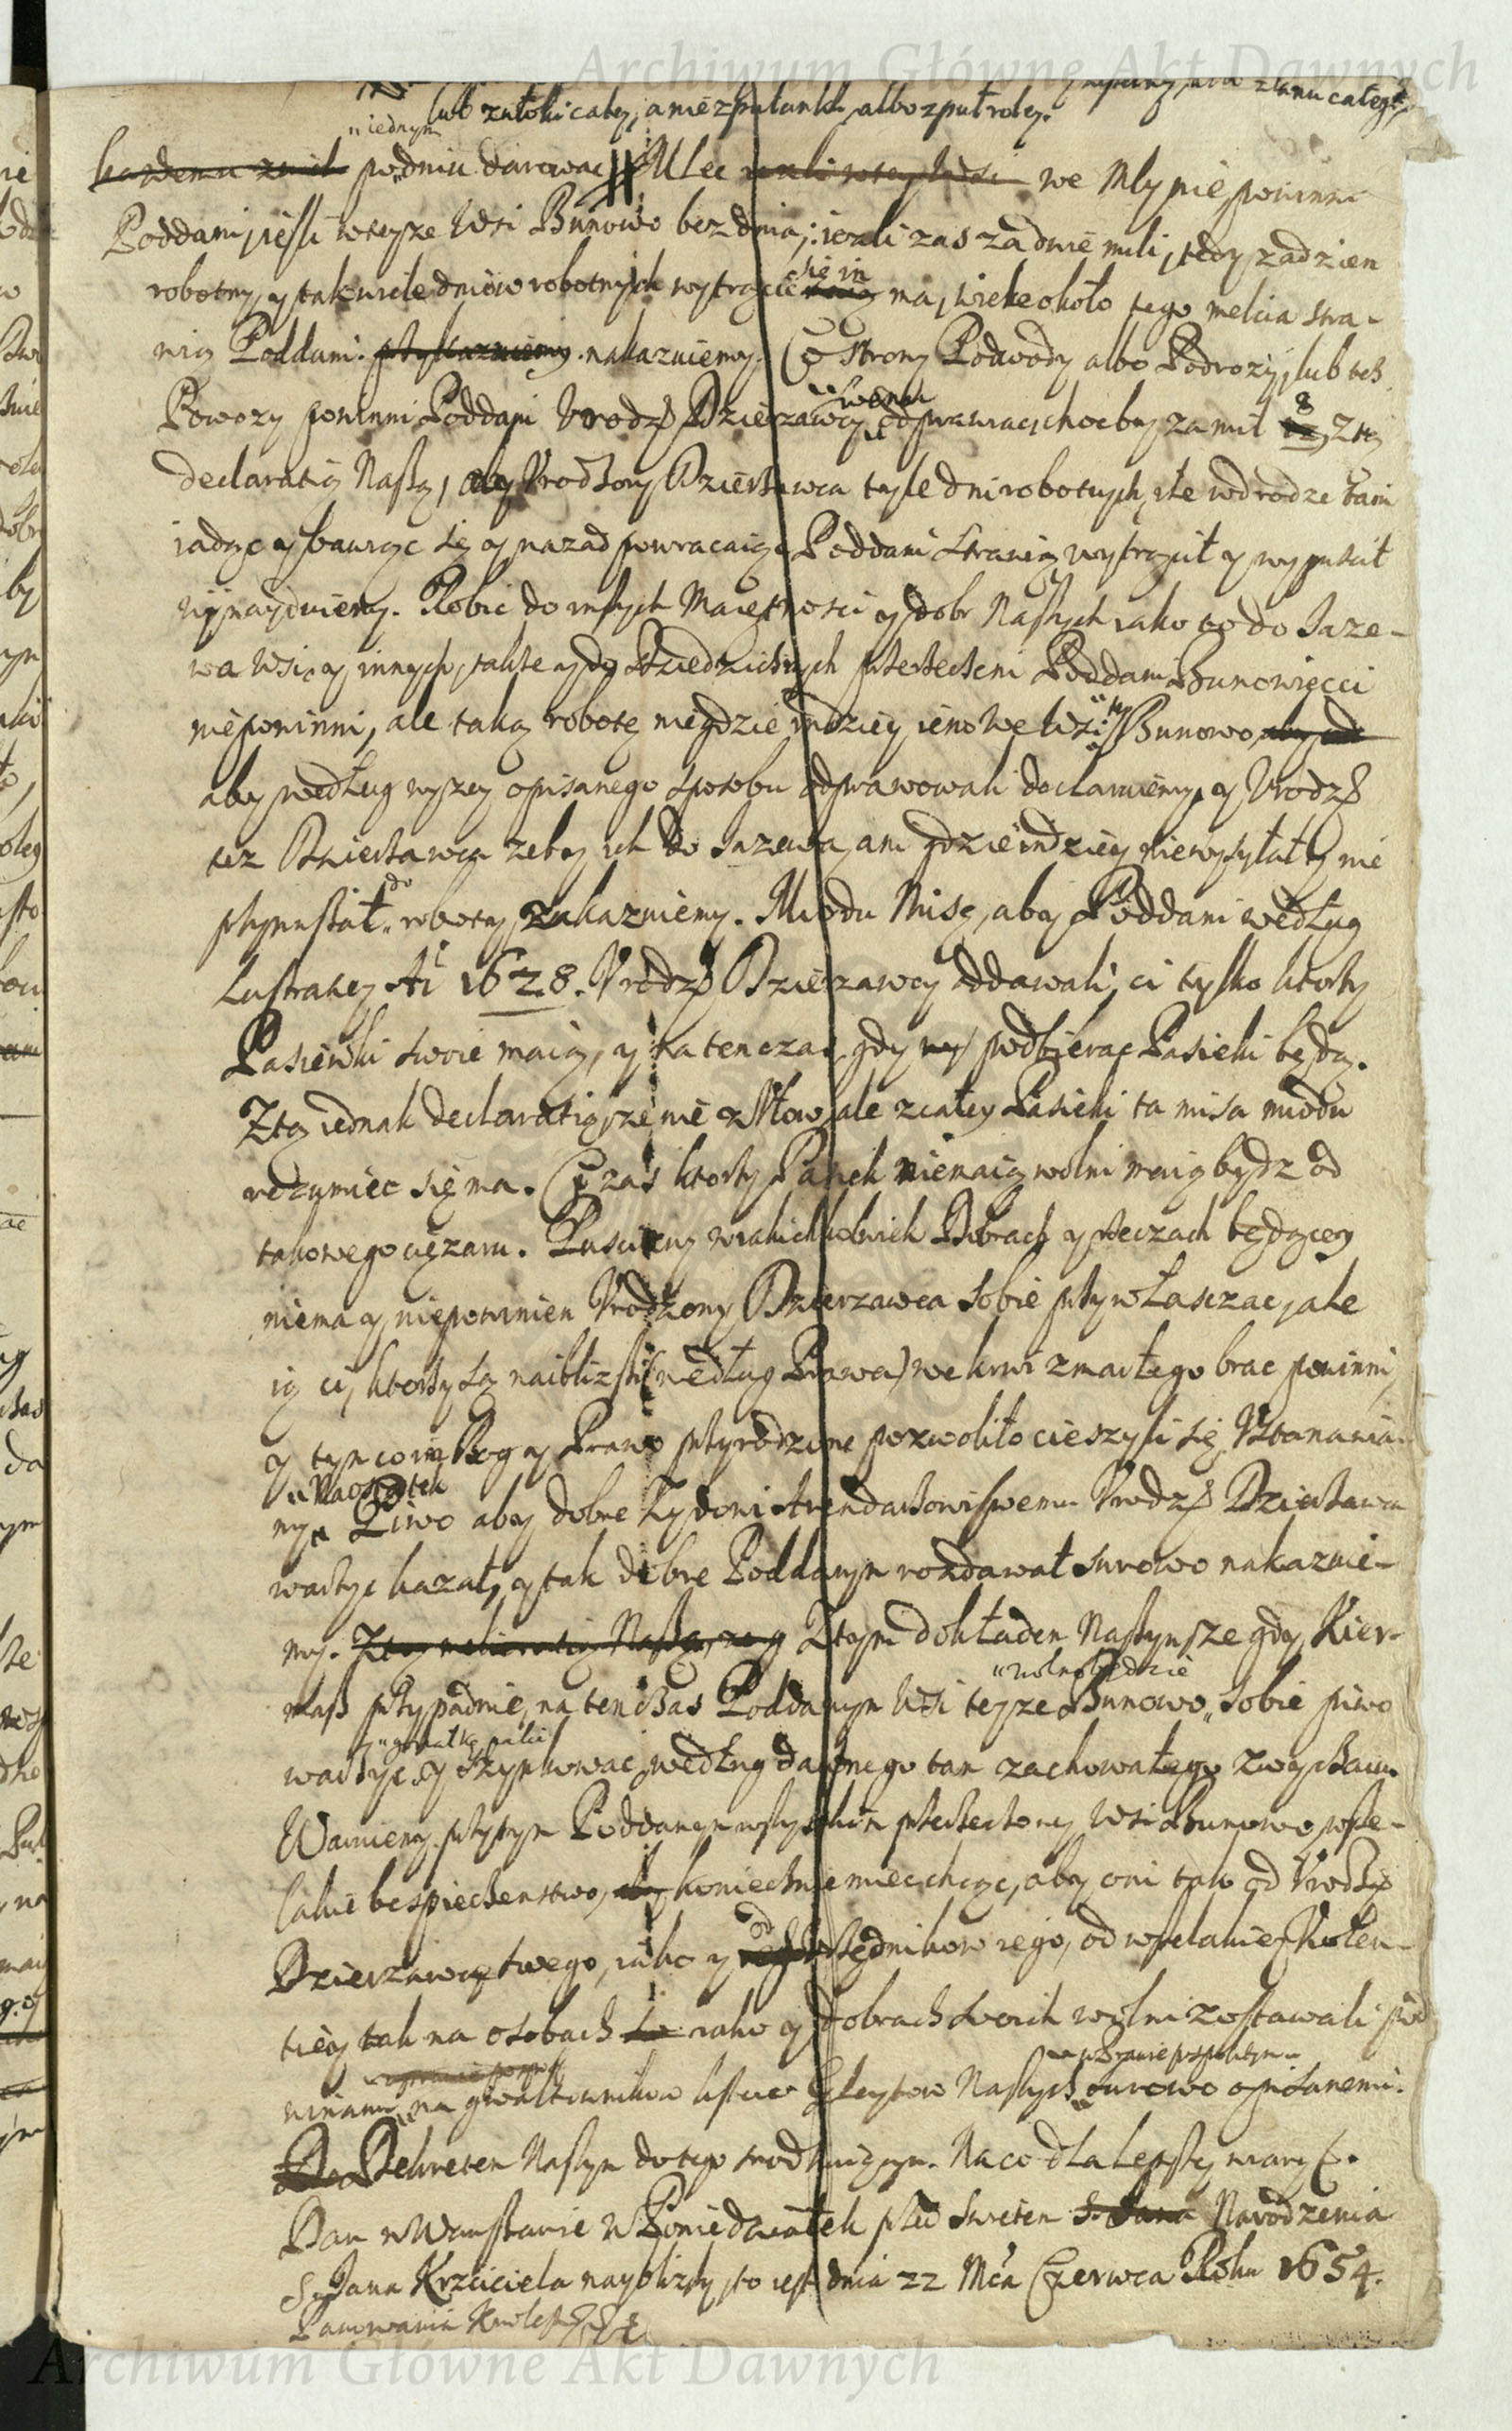 Archiwum Główne Akt Dawnych
z łanu całego
lub z włoki całey, a nie z pułłanku, albo z puł roley.
iednym
każdemu po dniu darować Mleć we Młynie powinni
Poddani, ieśli w teyże Wsi Bunowo bez dnia; ieżli zaś za dwie mili, tedy za dzień
robotny, y tak wiele dniów robotnych wytrącić się im ma, wiele około tego melcia stra-
wią Poddani nakazuiemy. Co strony Podwody albo Podroży, lub też
Powozy powinni Poddani Vrodz. Dzierzawcy odprawiać, choćby za mil 8 Z tą
declaratią Naszą, aby Vrodzony Dzierżawca tyle dni robotnych, ile w drodze tam
iadąc y bawiąc się y nazad powracaiąc Poddani strawią wytrącił y wypuścił
wynayduiemy. Robić do inszych Maiętności y dobr Naszych iako to do Jaze-
wa Wsi, y innych, także y do Dziedzicznych rzeczeni Poddani Bunowięcy
niepowinni, ale taką robotę niegdzie indziey ieno we Wsi tey Bunowo
aby według wyżey opisanego sposobu odprawowali declaruiemy, y Vrodz.
też Dzierżawca żeby ich do Jazewa, ani gdzieindziey niewysyłał y nie
przymuszał do roboty, zakazuiemy. Miodu Misę, aby Poddani według
Lustratiey Ai 1628. Vrodz. Dzierzawcy oddawali; ci tylko ktorzy
Pasieki swoie maią, y na ten czas, gdy podbierać Pasieki będą.
Z tą iednak declaratią, że nie z Vlow, ale z całey Pasieki ta misa miodu
rozumieć się ma. Ci zaś ktorzy Pasiek niemaią wolni maią bydź od
takowego ciężaru. Puścizny w iakichkolwiek Dobrach y rzeczach będącey
niema y niepowinien Vrodzony Dzierzawca sobie przywłaszczać, ale
ią ci, ktorzy są naibliższi (według Prawa) we krwi zmarłego brać powinni,
y tym co im Bog y Prawo przyrodzone pozwoliło cieszyli się, Vstanawia-
Naostatek
my. Piwo aby dobre Żydowi Arendarzowi swemu Vrodz. Dzierżawca
warzyć kazał, y tak dobre Poddanym rozdawał surowo nakazuie-
my. Z tym dokładem Naszym, że gdy Kier-
wolno będzie
masz przypadnie, na ten czas Poddanym Wsi teyże Bunowo sobie piwo
y gorzałkę palić
warzyć, y szynkować według dawnego tam zachowałego zwyczaiu.
Waruiemy przytym Poddanym wszystkim rzeczoney Wsi Bunowo wsze-
lakie bespieczeństwo, koniecznie mieć chcąc, aby oni tak od Vrodz.
Dzierzawcy swego, iako y od Vrzędnikow iego, od wszelakiey Violen-
tiey tak na osobach iako y dobrach swoich wolni zostawali pod
w Prawie pospolitym
winami na gwałtownikow listow Gleytow Naszych surowo opisanemi.
Dekretem Naszym do tego srodkuiącym. Na co dla lepszey wiary etc.
Dan w Warszawie w Poniedziałek przed Swiętem Narodzenia
S. Jana Krzciciela naybliższy, to iest dnia 22 Mca Czerwca Roku 1654.
Panowania Krolestw
Archiwum Główne Akt Dawnych